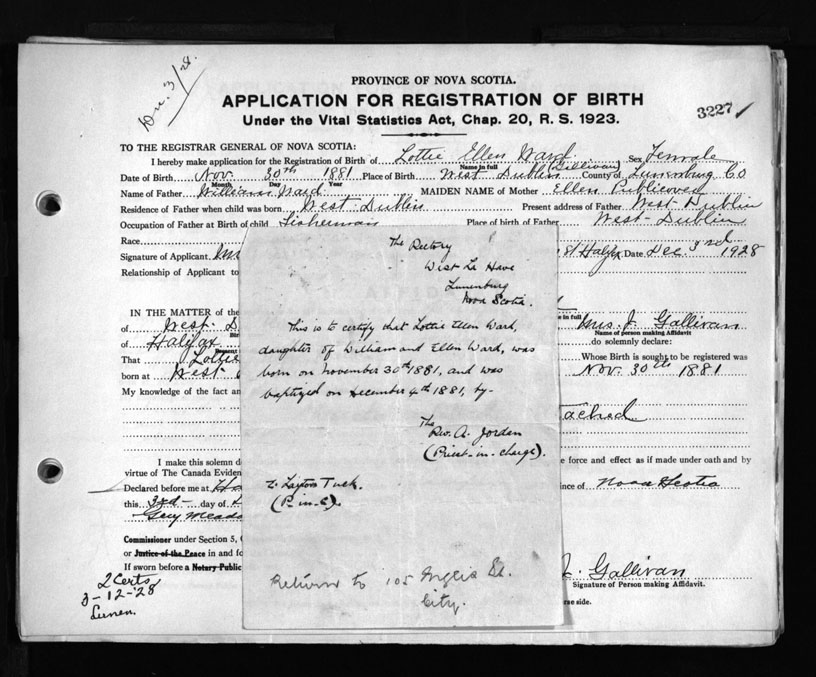 Dec. 3/28.
PROVINCE OF NOVA SCOTIA.
APPLICATION FOR REGISTRATION OF BIRTH
Under the Vital Statistics Act, Chap. 20, R. S. 1923.
3227
TO THE REGISTRAR GENERAL OF NOVA SCOTIA:
I hereby make application for the Registration of Birth of Lottie Ellen Ward Sex Female
Name in full (Gallivan)
Date of Birth Nov. 30th 1881 Place of Birth West Dublin County of Lunenburg Co
Month Day Year
Name of Father William Ward MAIDEN NAME of Mother Ellen Publicover
Residence of Father when child was born West Dublin Present address of Father West Dublin
Occupation of Father at Birth of child Fisherman Place of birth of Father West-Dublin
Race
Signature of Applicant Mrs St Halfx Date Dec 3rd 1928
Relationship of Applicant to
The Rectory
West La Have
Lunenburg
Nova Scotia.
This is to certify that Lottie Ellen Ward,
daughter of William and Ellen Ward, was
born on November 30th 1881, and was
baptized on December 4th 1881, by-
The
Rev. A. Jordan
(Priest-in-charge).
T. Layton Tuck.
(P-in-C).
Return to 105 Inglis St.
City.
IN THE MATTER of the
of West D
of Halifax
Present
That Lottie
born at West
My knowledge of the fact an
in full Mrs. J. Gallivan
Name of person making Affidavit
do solemnly declare:
Whose Birth is sought to be registered was
Nov. 30th 1881
tached
I make this solemn d
virtue of The Canada Eviden
Declared before me at Ha
this 3rd day of D
Commissioner under Section 5,
or Justice of the Peace in and fo
If sworn before a Notary Public
e force and effect as if made under oath and by
ince of Nova Scotia
J. Gallivan
Signature of Person making Affidavit.
rse side.
2 Certs
3-12-'28
Lunen.